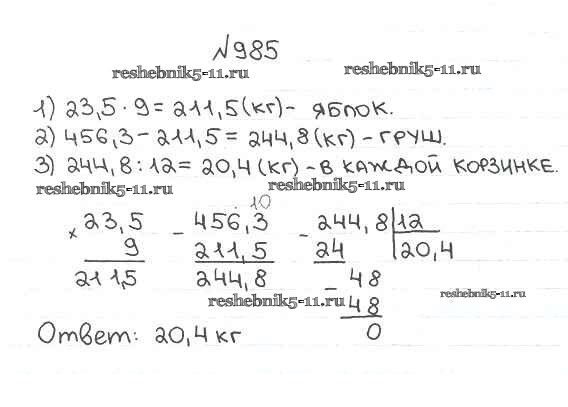 №985
reshebnik5-11.ru reshebnik5-11.ru
1) 23,5 · 9 = 211,5 (кг) - ЯБЛОК.
2) 456,3 - 211,5 = 244,8 (кг) - ГРУШ.
3) 244,8 : 12 = 20,4 (кг) - В КАЖДОЙ КОРЗИНКЕ.
reshebnik5-11.ru reshebnik5-11.ru
10
× 23,5 - 456,3 - 244,8 | 12
9 211,5 24 20,4
211,5 244,8 - 48
reshebnik5-11.ru 48 reshebnik5-11.ru
0
Ответ: 20,4 кг